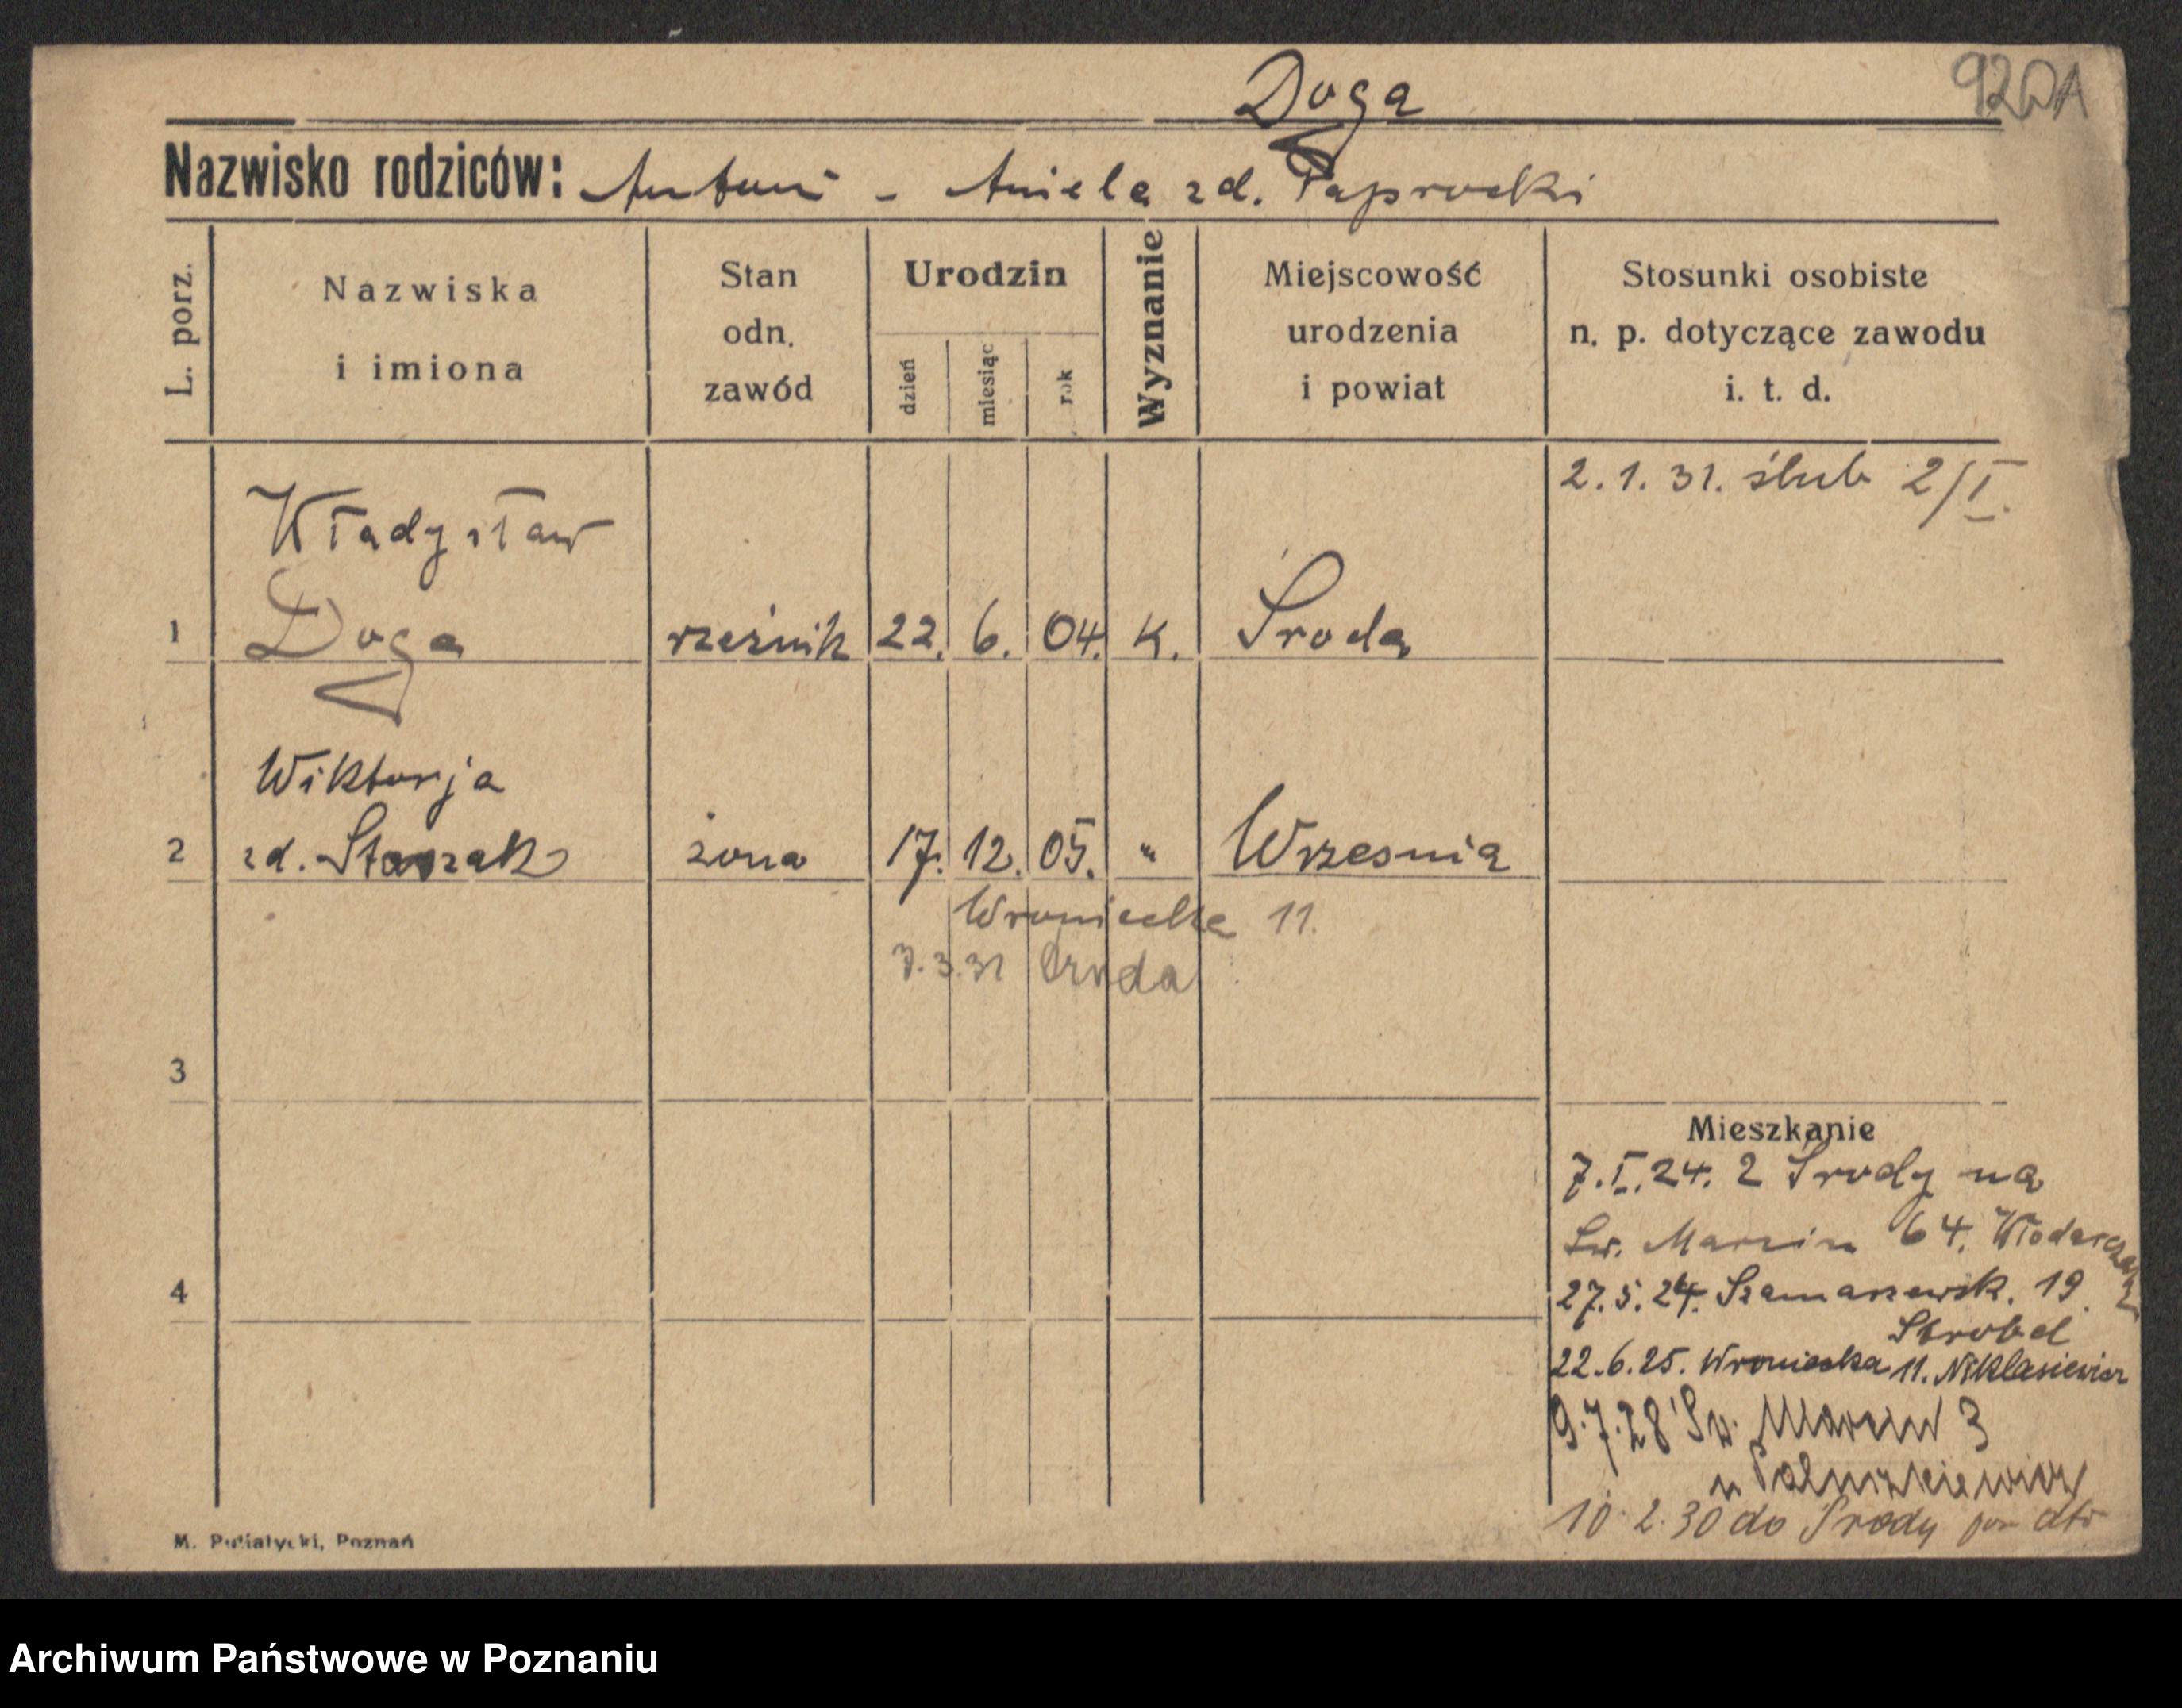 Doga
920A
Nazwisko rodziców: Antoni - Aniela zd. Paprocki
L. porz.
Nazwiska
i imiona
Stan
odn.
zawód
Urodzin
dzień
miesiąc
rok
Wyznanie
Miejscowość
urodzenia
i powiat
Stosunki osobiste
n. p. dotyczące zawodu
i. t. d.
2.1.31. ślub 2/I.
Władysław
1 Doga rzeźnik 22. 6. 04. K. Środa
Wiktorja
2 zd. żona 17. 12. 05. " Wrzesnia
Wroniecka 11.
7.3.31 Środa
3
Mieszkanie
7.I.24. z Środy na
Św. Marcin 64. Włodarczak
4
27.5.24. Szamarzewsk. 19.
Strobel
22.6.25. Wroniecka 11. Niklasiewicz
9.7.28 Św. Marcin 3
u
10.2.30 do Środy
M. Putiatycki, Poznań
Archiwum Państwowe w Poznaniu